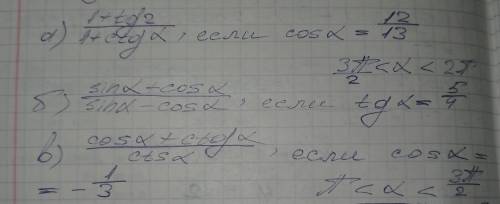 а) 1+tg2 / 1+ctgα, если cosα = 12/13
3π/2 < α < 2π
б) sinα+cosα / sinα-cosα, если tgα = 5/4
в) cosα+ctgα / ctgα, если cosα =
= - 1/3 π < α < 3π/2